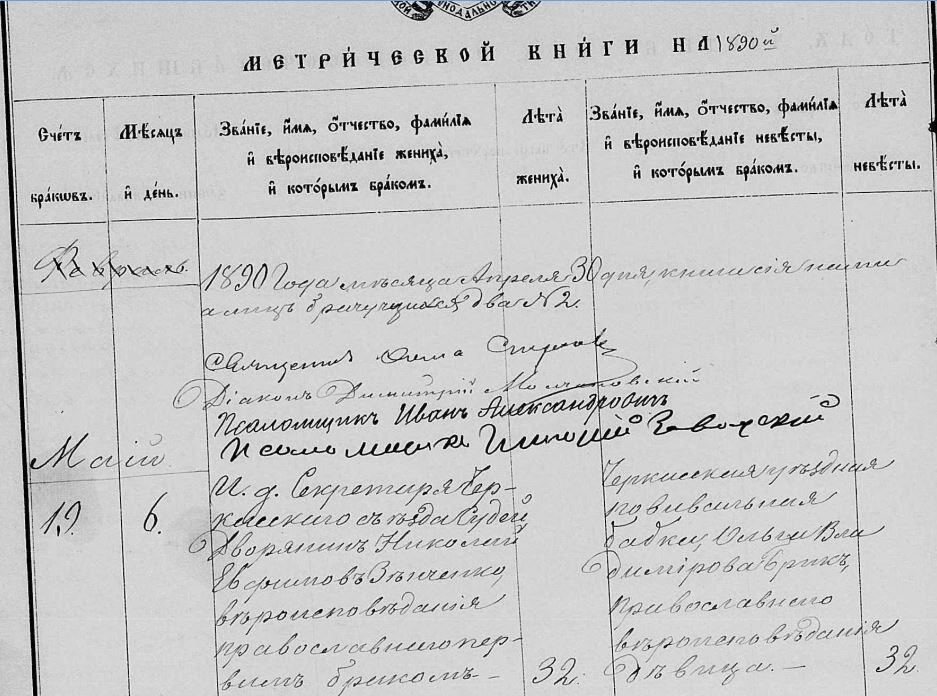 МЕТРИ́ЧЕСКОЙ КНИ́ГИ НА 1890й
Сче́тъ бра́кѡвъ.
Мѣ́сяцъ и҆ де́нь.
Зва́нїе, и҆́мѧ, ѻ҆́тчество, фами́лїѧ
и҆ вѣроисповѣ́данїе жениха̀,
и҆ кото́рымъ бра́комъ.
Лѣта̀
жениха̀.
Зва́нїе, и҆́мѧ, ѻ҆́тчество, фами́лїѧ
и҆ вѣроисповѣ́данїе невѣ́сты,
и҆ кото́рымъ бра́комъ.
Лѣта̀
невѣ́сты.
1890 Года мѣсяца Апреля 30 дня, книга сія
а лицъ два №2.
Священникъ
Діаконъ Димитрій
Псаломщикъ Иванъ Александровичъ
Псаломщикъ
Май.
19
6.
И. д. Секретаря Чер-
касскаго съѣзда Судей,
Дворянинъ Николай
Евфимовъ Зѣнченко,
вѣроисповѣданія
православнаго пер-
вымъ бракомъ —
32.
Черкасская уѣздная
повивальная
бабка, Ольга Вла
димірова Брикъ,
православнаго
вѣроисповѣданія
дѣвица. —
32.